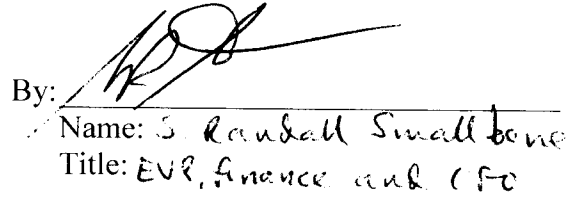 By:
Name: S. Randall Smallbone
Title: EVP, Finance and CFO